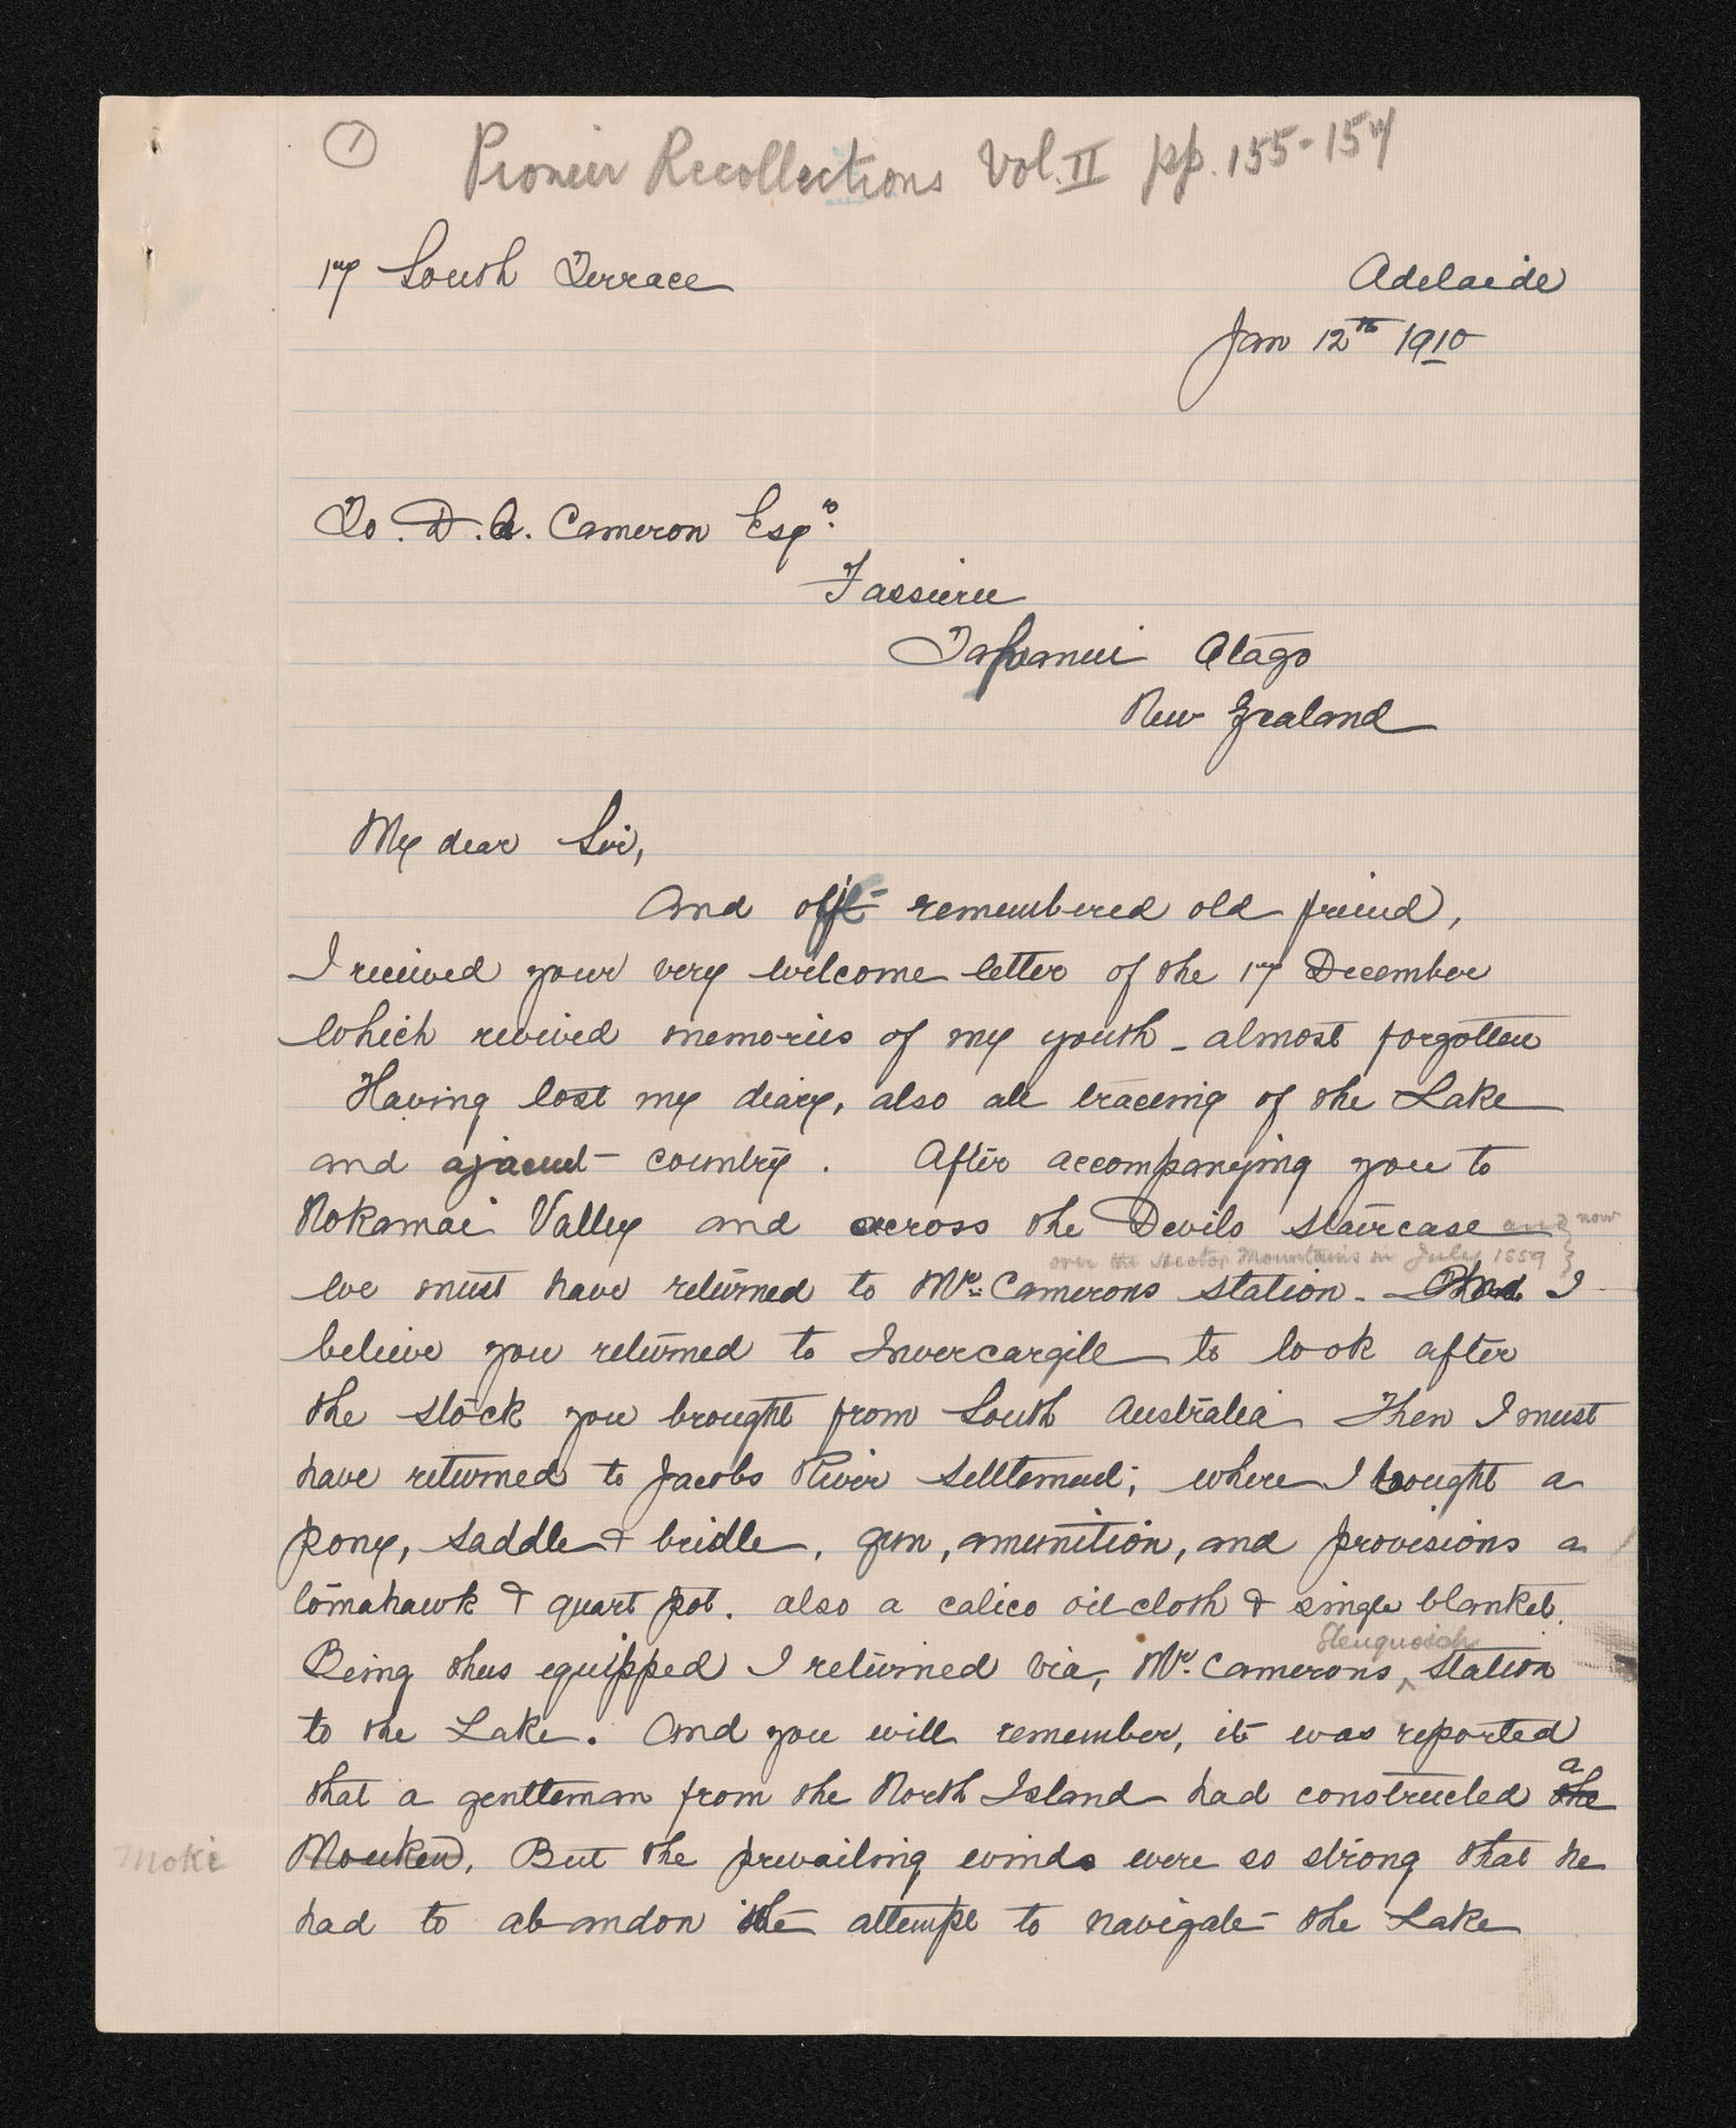 1 Pioneer Recollections Vol. II pp. 155-157
17 South Terrace Adelaide
Jan 12th 1910
To. D. A. Cameron Esqr.
Tapanui Otago
New Zealand
My dear Sir,
And oft- remembered old friend,
I received your very welcome letter of the 17 December
which revived memories of my youth - almost forgotten
Having lost my diary, also all traceing of the Lake
and ajacent country. After accompanying you to
Nokamai Valley and across the Devils staircase and now
over the Hector Mountains in July 1859
we must have returned to Mr. Camerons station - And I
believe you returned to Invercargill to look after
the stock you brought from South Australia Then I must
have returned to Jacobs River settlement; where I bought a
pony, saddle & bridle, gun, amunition, and provisions a
tomahawk & quart pot. also a calico oilcloth & single blanket.
Glenquoich
Being thus equipped I returned via, Mr. Camerons ^ station
to the Lake. And you will remember, it was reported
that a gentleman from the North Island had constructed the a
Moki Mouken, But the prevailing winds were so strong that he
had to abandon the attempt to navigate the Lake